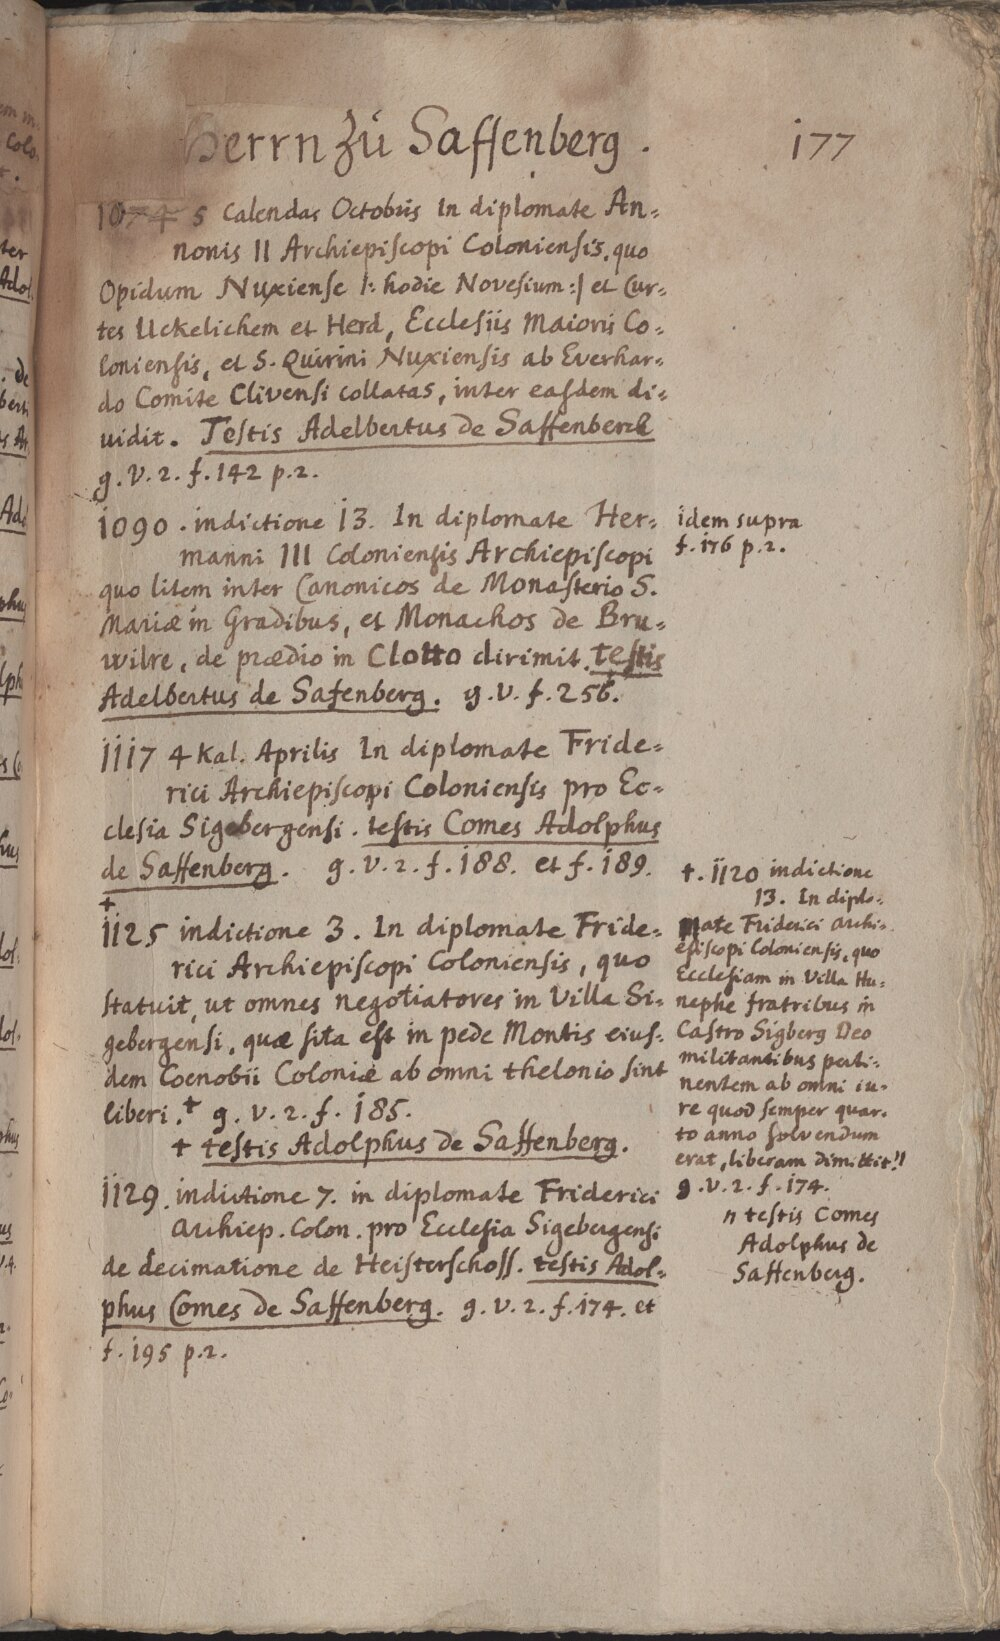 Herrn Zu Saffenberg.
177
1074 5 Calendas Octobris In diplomate An=
nonis II Archiepiscopi Coloniensis, quo
Opidum Nuxiense |: hodie Novesium :| et Cur=
tes Uckelichem et Herd, Ecclesiis Maioris Co=
loniensis, et S. Quirini Nuxiensis ab Everhar=
do Comite Clivensi collatas, inter easdem di=
uidit. Testis Adelbertus de Saffenberck
g. V. 2. f. 142 p. 2.
1090. indictione 13. In diplomate Her=
manni III Coloniensis Archiepiscopi
quo litem inter Canonicos de Monasterio S.
Mariæ in Gradibus, et Monachos de Bru=
wilre, de prædio in Clotto dirimit. testis
Adelbertus de Safenberg. g. V. f. 256.
idem supra
f. 176 p. 2.
1117 4 Kal. Aprilis In diplomate Fride=
rici Archiepiscopi Coloniensis pro Ec=
clesia Sigebergensi. testis Comes Adolphus
de Saffenberg. g. V. 2. f. 188. et f. 189.
+
1125 indictione 3. In diplomate Fride=
rici Archiepiscopi Coloniensis, quo
statuit, ut omnes negotiatores in Villa Si=
gebergensi, quæ sita est in pede Montis eius=
dem Coenobii Coloniæ ab omni thelonio sint
liberi. + g. V. 2. f. 185.
+ testis Adolphus de Saffenberg.
1129. indictione 7. in diplomate Friderici
Archiep. Colon. pro Ecclesia Sigebergensi
de decimatione de Heisterschoss. testis Adol=
phus Comes de Saffenberg. g. V. 2. f. 174. et
f. 195 p. 2.
+. 1120 indictione
13. In diplo=
mate Friderici Archi=
episcopi Coloniensis, quo
Ecclesiam in Villa Hu=
nephe fratribus in
Castro Sigberg Deo
militantibus perti=
nentem ab omni iu=
re quod semper quar=
to anno solvendum
erat, liberam dimittit !!
g. V. 2. f. 174.
n testis Comes
Adolphus de
Saffenberg.